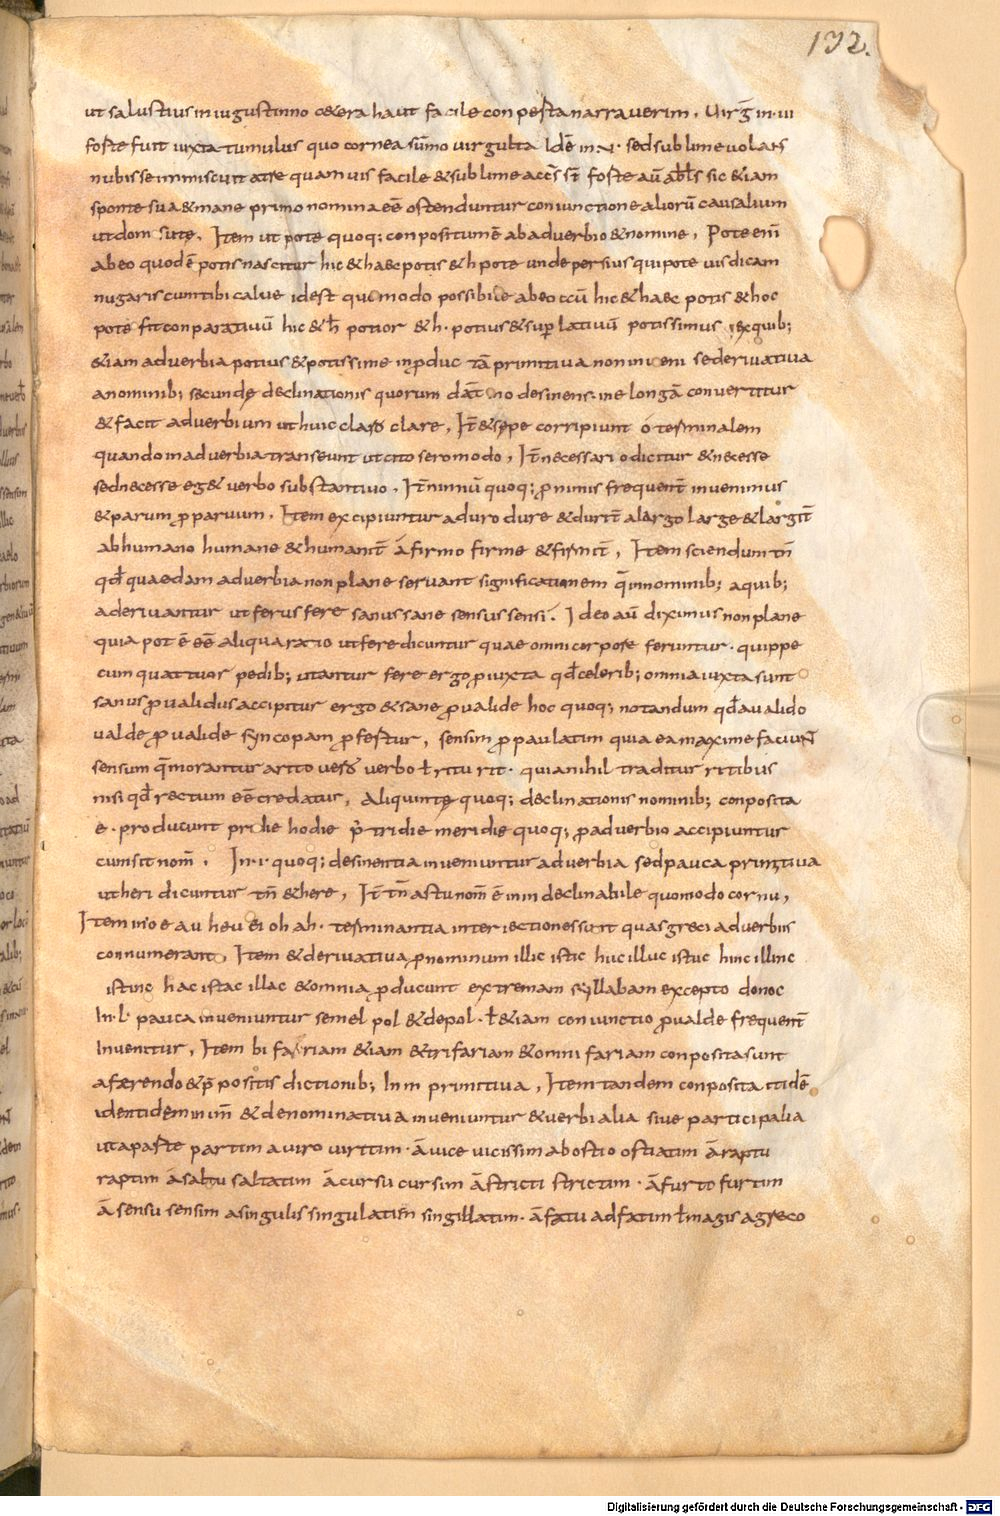 132.
ut salustius in iugustinno cetera haut facile conpesta narraverim. Uirḡ in ui
foste fuit iuxta tumulus quo cornea sūmo uirgulta Idē in N· sed sublime uolans
nubis se inmiscuit atre quamuis facile & sublime acc̄s s̄t foste aū abl̄s sic &iam
sponte sua & mane primo nomina eē ostenduntur coniunctione aliorū causalium
ut dom siue. Item ut pote quoq; conpositum ē ab aduerbio & nomine. Pote enī
ab eo quod ē potis nascitur hic & haec potis & h pote unde persius qui pote uis dicam
nugaris cum tibi calue idest quomodo possibile ab eo ccū hic & haec potis & hoc
pote fit conparatiuū hic & h̄ potior & h· potius & sup latiuū potissimus, ex quib;
&iam aduerbia potius & potissime in pduc tā primitiua non inueni sed eriuatiua
a nominib; secundę declinationis quorum dāt no desinens in e longā conuertitur
& facit aduerbium ut huic claro clare, It̄ & sępe corripiunt ó terminalem
quando in aduerbia transeunt ut cito sero modo, It̄ necessario dicitur & necesse
sed necesse eg& uerbo substantiuo. It̄ nimiū quoq; p nimis frequent̄ inuenimus
& parum p paruum. Item excipiuntur a duro dure & durit̄ a largo large & largit̄
ab humano humane & humanit̄ á firmo firme & firmit̄, Item sciendum tn̄
qd̄ quaedam aduerbia non plane seruant significationem q̄ in nominib; a quib;
a deriuantur ut ferus fere sanus sane sensus sensi. Ideo aū diximus non plane
quia pot ē eē aliqua ratio ut fere dicuntur quae omni corpore feruntur· quippe
cum quattuor pedib; utantur fere ergo p iuxta qd̄ celerib; omnia iuxta sunt
sanus p ualidus accipitur ergo & sane p ualide hoc quoq; notandum qd̄ a ualido
ualde p ualide syncopam p festur, sensim p paulatim quia ea maxime faciunt
sensum q̄ morantur arito uero uerbo ł ritu rit· quia nihil traditur ritibus
nisi qd̄ rectum eē credatur, Aliquinte quoq; declinationis nominib; conposita
e· producunt pridie hodie p̄tridie meridie quoq; p aduerbio accipiuntur
cum sit nom̄. In·i· quoq; desinentia inueniuntur aduerbia sed pauca primitiua
ut heri dicuntur tn̄ & here, It̄ tn̄ astu nom̄ ē inindeclinabile quomodo cornu,
Item in o e au heu ei oh ah· terminantia interiectiones sunt quas greci aduerbiis
connumerant, Item & deriuatiua pnominum illic istic huc illuc istuc hinc illinc
istinc hac istac illac & omnia pducunt extremam syllabam excepto donec
In·l· pauca inueniuntur semel pol & depol· ł &iam coniunctio p ualde frequent̄
Inuenitur, Item bi fariam &iam & trifariam & omnifariam conposita sunt
a faerendo & p̄positis dictionib; In m primitiua, Item tandem conposita itidē
identidem in im̄ & denominatiua inueniuntur & uerbialia siue participalia
ut a parte partim a uiro uirtim· á uice uicissim ab ostio ostiatim á raptu
raptim á saltu saltatim á cursu cursim á stricti strictim· á furto furtim
á sensu sensim a singulis singulatim singillatim· á fatu adfatim ł magis a greco
Digitalisierung gefördert durch die Deutsche Forschungsgemeinschaft - DFG